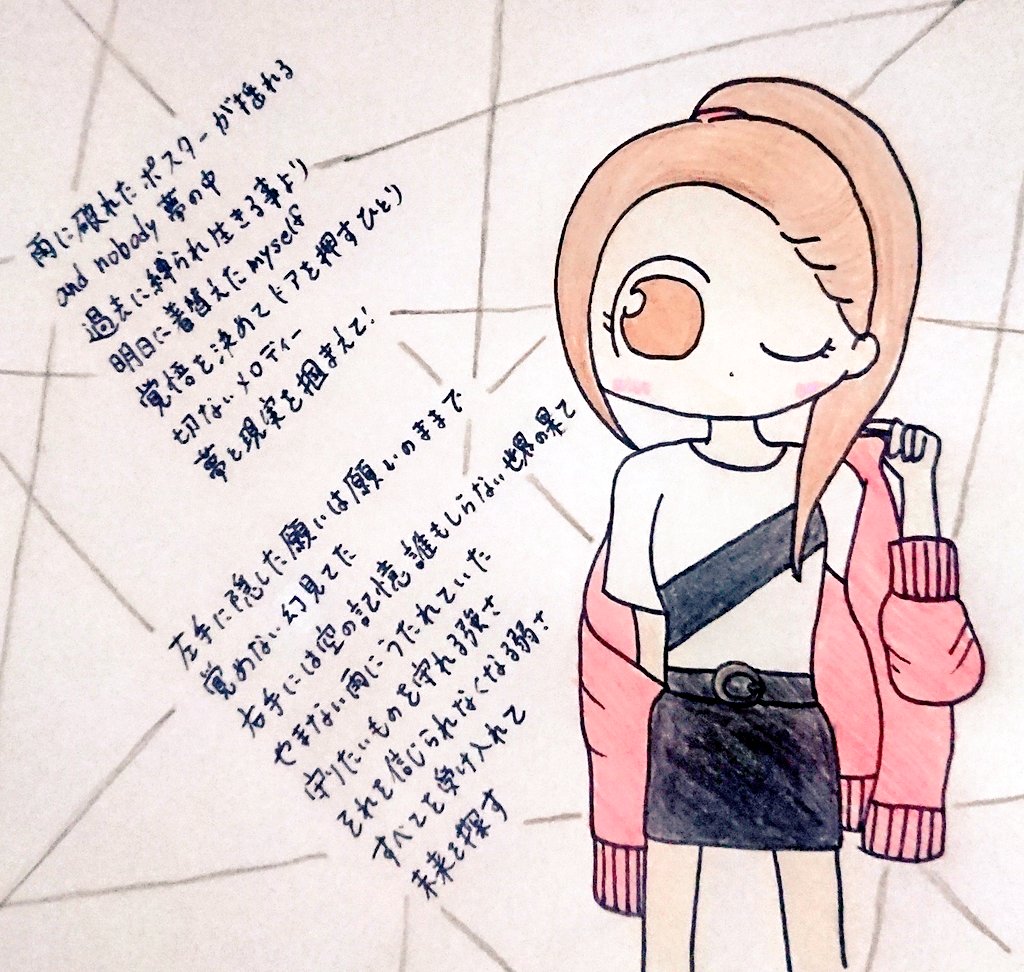 雨に破れたポスターが揺れる
and nobody 夢の中
過去に縛られ生きる事より
明日に着替えたmyself
覚悟を決めてドアを押すひとり
切ないメロディー
夢と現実を掴まえて!
左手に隠した願いは願いのままで
覚めない幻見てた
右手には空の記憶 誰もしらない世界の果て
やまない雨にうたれていた
守りたいものを守れる強さ
それを信じられなくなる弱さ
すべてを受け入れて
未来を探す